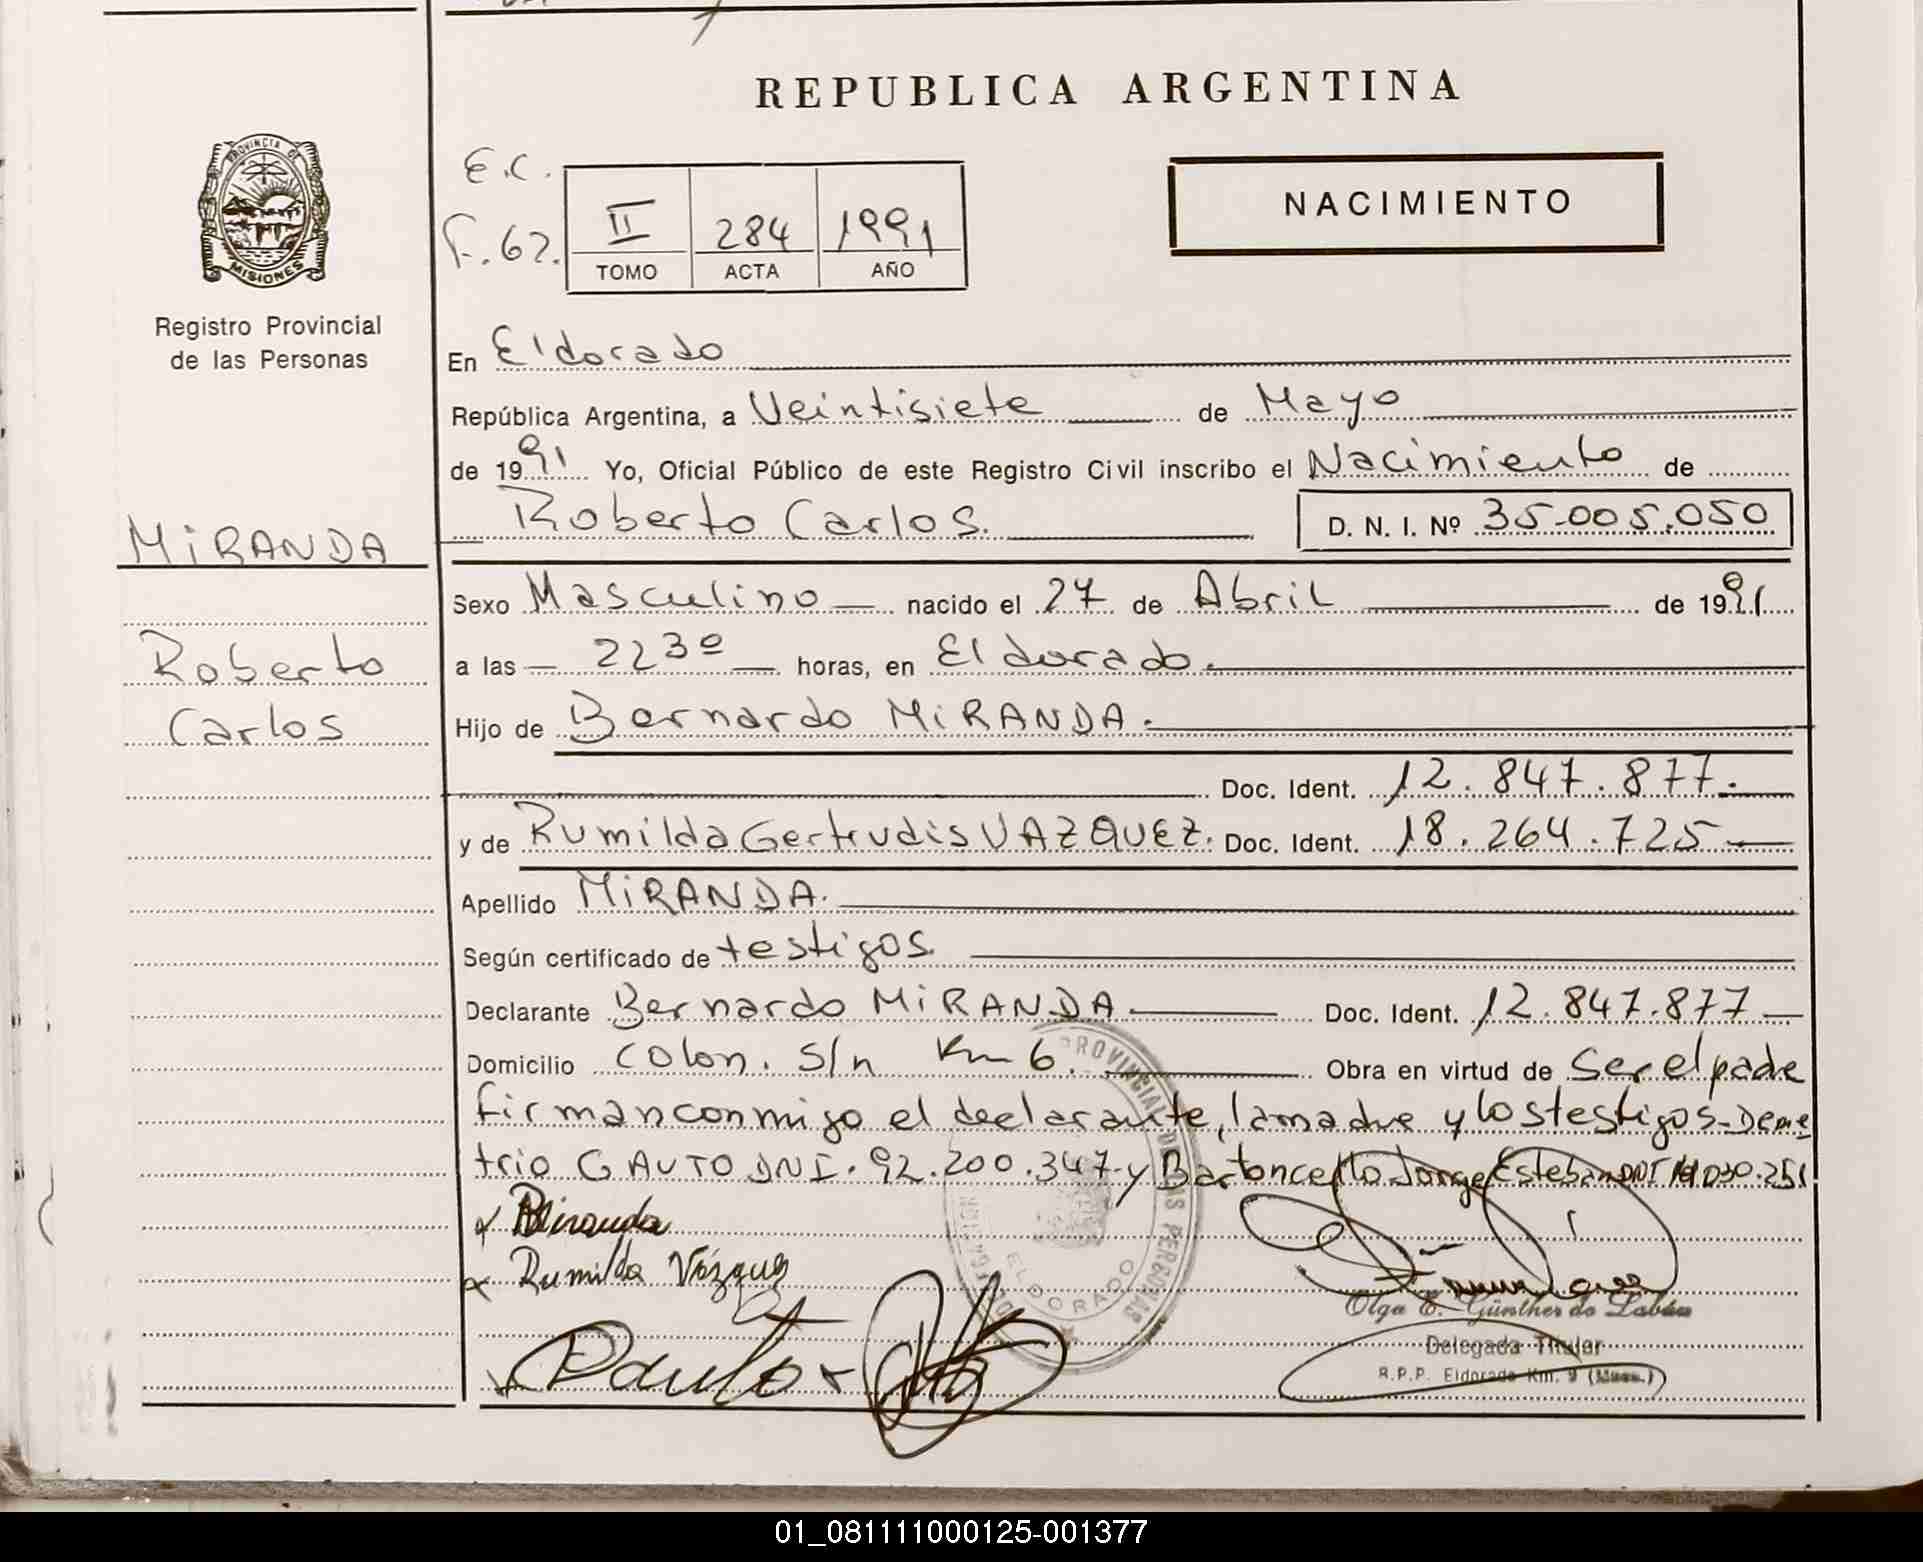 REPUBLICA ARGENTINA
PROVINCIA DE
MISIONES
Registro Provincial
de las Personas
E.C.
F. 62.
II 284 1991
TOMO ACTA AÑO
NACIMIENTO
En Eldorado
República Argentina, a Veintisiete de Mayo
de 1991 Yo, Oficial Público de este Registro Civil inscribo el Nacimiento de
Roberto Carlos. D. N. I. Nº 35.005.050
MiRANDA
Sexo Masculino nacido el 27 de Abril de 1991
Roberto
a las 2230 horas, en Eldorado.
Carlos
Hijo de Bernardo MiRANDA.
Doc. Ident. 12.847.877.
y de Rumilda Gertrudis VAZQUEZ. Doc. Ident. 18.264.725
Apellido MiRANDA.
Según certificado de testigos.
Declarante Bernardo MiRANDA Doc. Ident. 12.847.877
Domicilio Colon. S/n Km 6. Obra en virtud de Ser el padre
firman conmigo el declarante, la madre y los testigos - Deme
trio GAUTO DNI. 92.200.347 y Bartoncello Jorge Esteban DNI 14.030.251
BMiranda
Rumilda Vázquez
PROVINCIAL DE LAS PERSONAS
ELDORADO
Olga E. Günther de Labán
Delegada Titular
R.P.P. Eldorado Km. 9 (Mnes.)
01_081111000125-001377